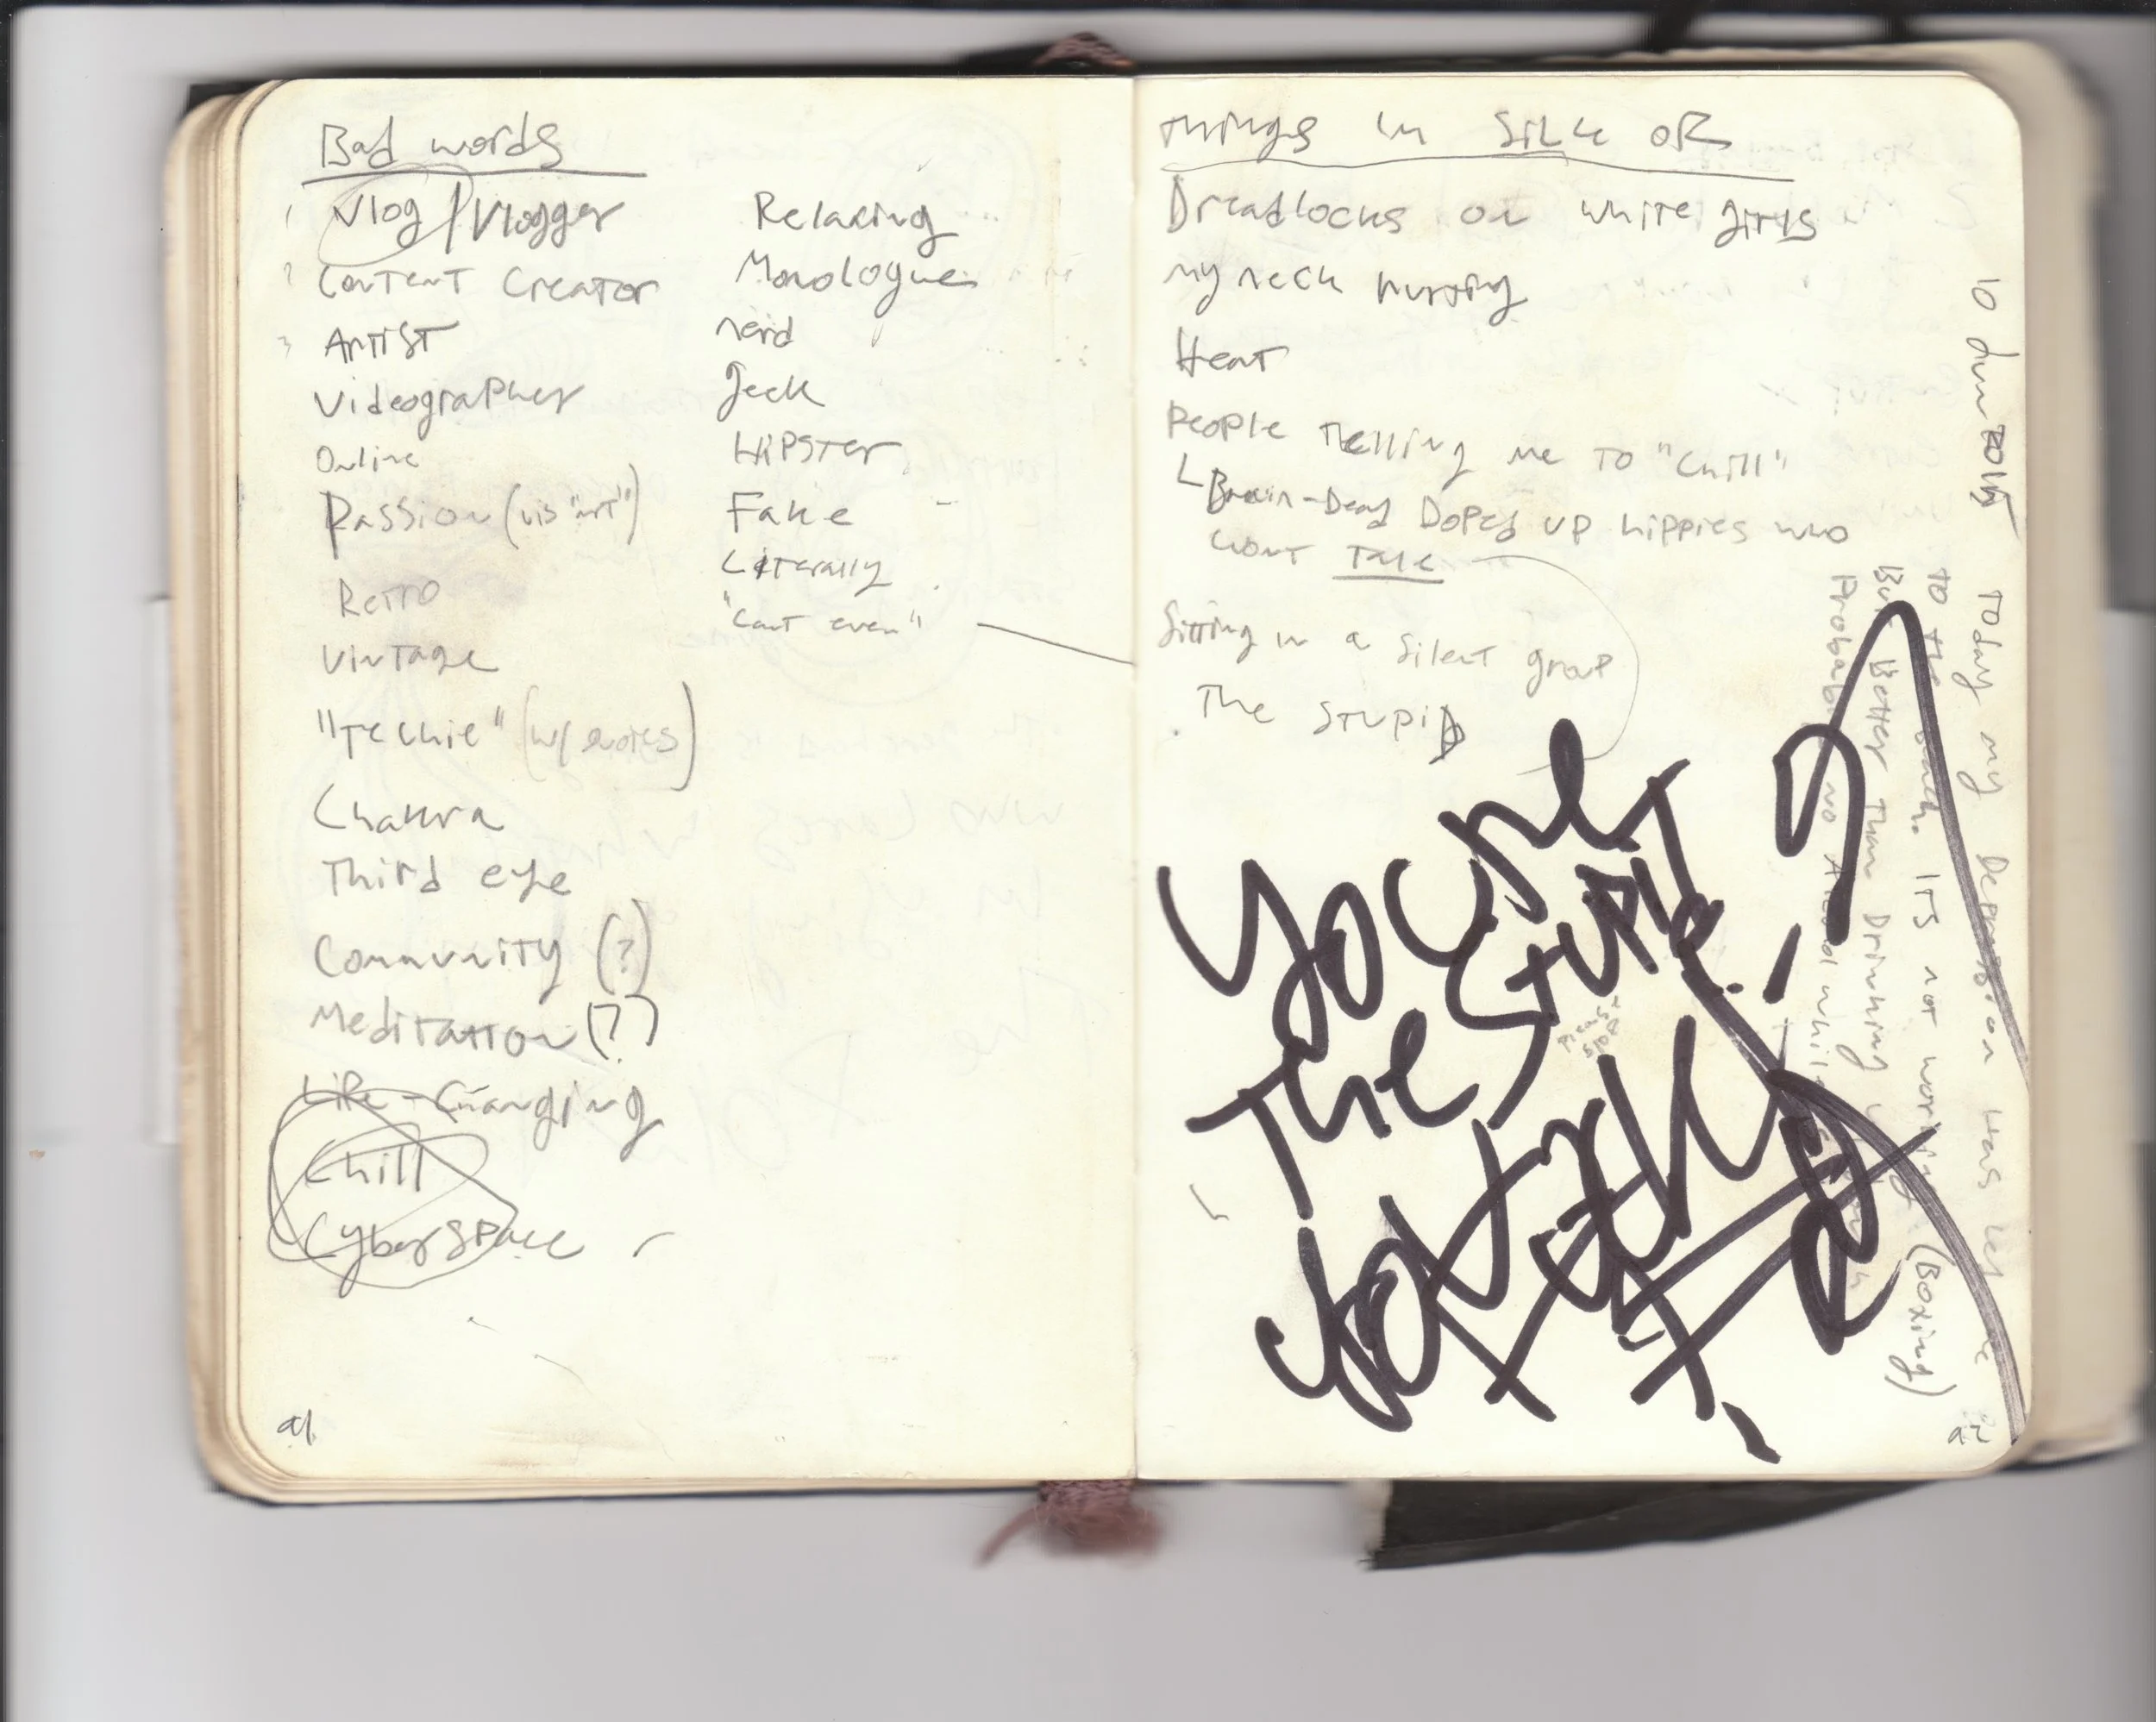 Bad words
Vlog/Vlogger
Content Creator
Artist
Videographer
Online
Passion (vis "art")
Retro
Vintage
"Techie" (w/ quotes)
Chakra
Third eye
Community (?)
Meditation (??)
Life-Changing
Chill
Cyberspace
Relaxing
Monologue
nerd
geek
Hipster
Fake
Literally
"Cant even"
91
Things im SiCk oF
Dreadlocks on white girls
my neck hurting
Heat
People Telling me To "Chill"
Brain-Dead Doped up hippies who
wont Talk
Sitting in a silent group
The Stupid
You're
The Stupid
10 Jun 2015 Today my Depression has led me
To the It's not working (Boxing)
But Better Than Drinking
Probably no Alcohol while
92